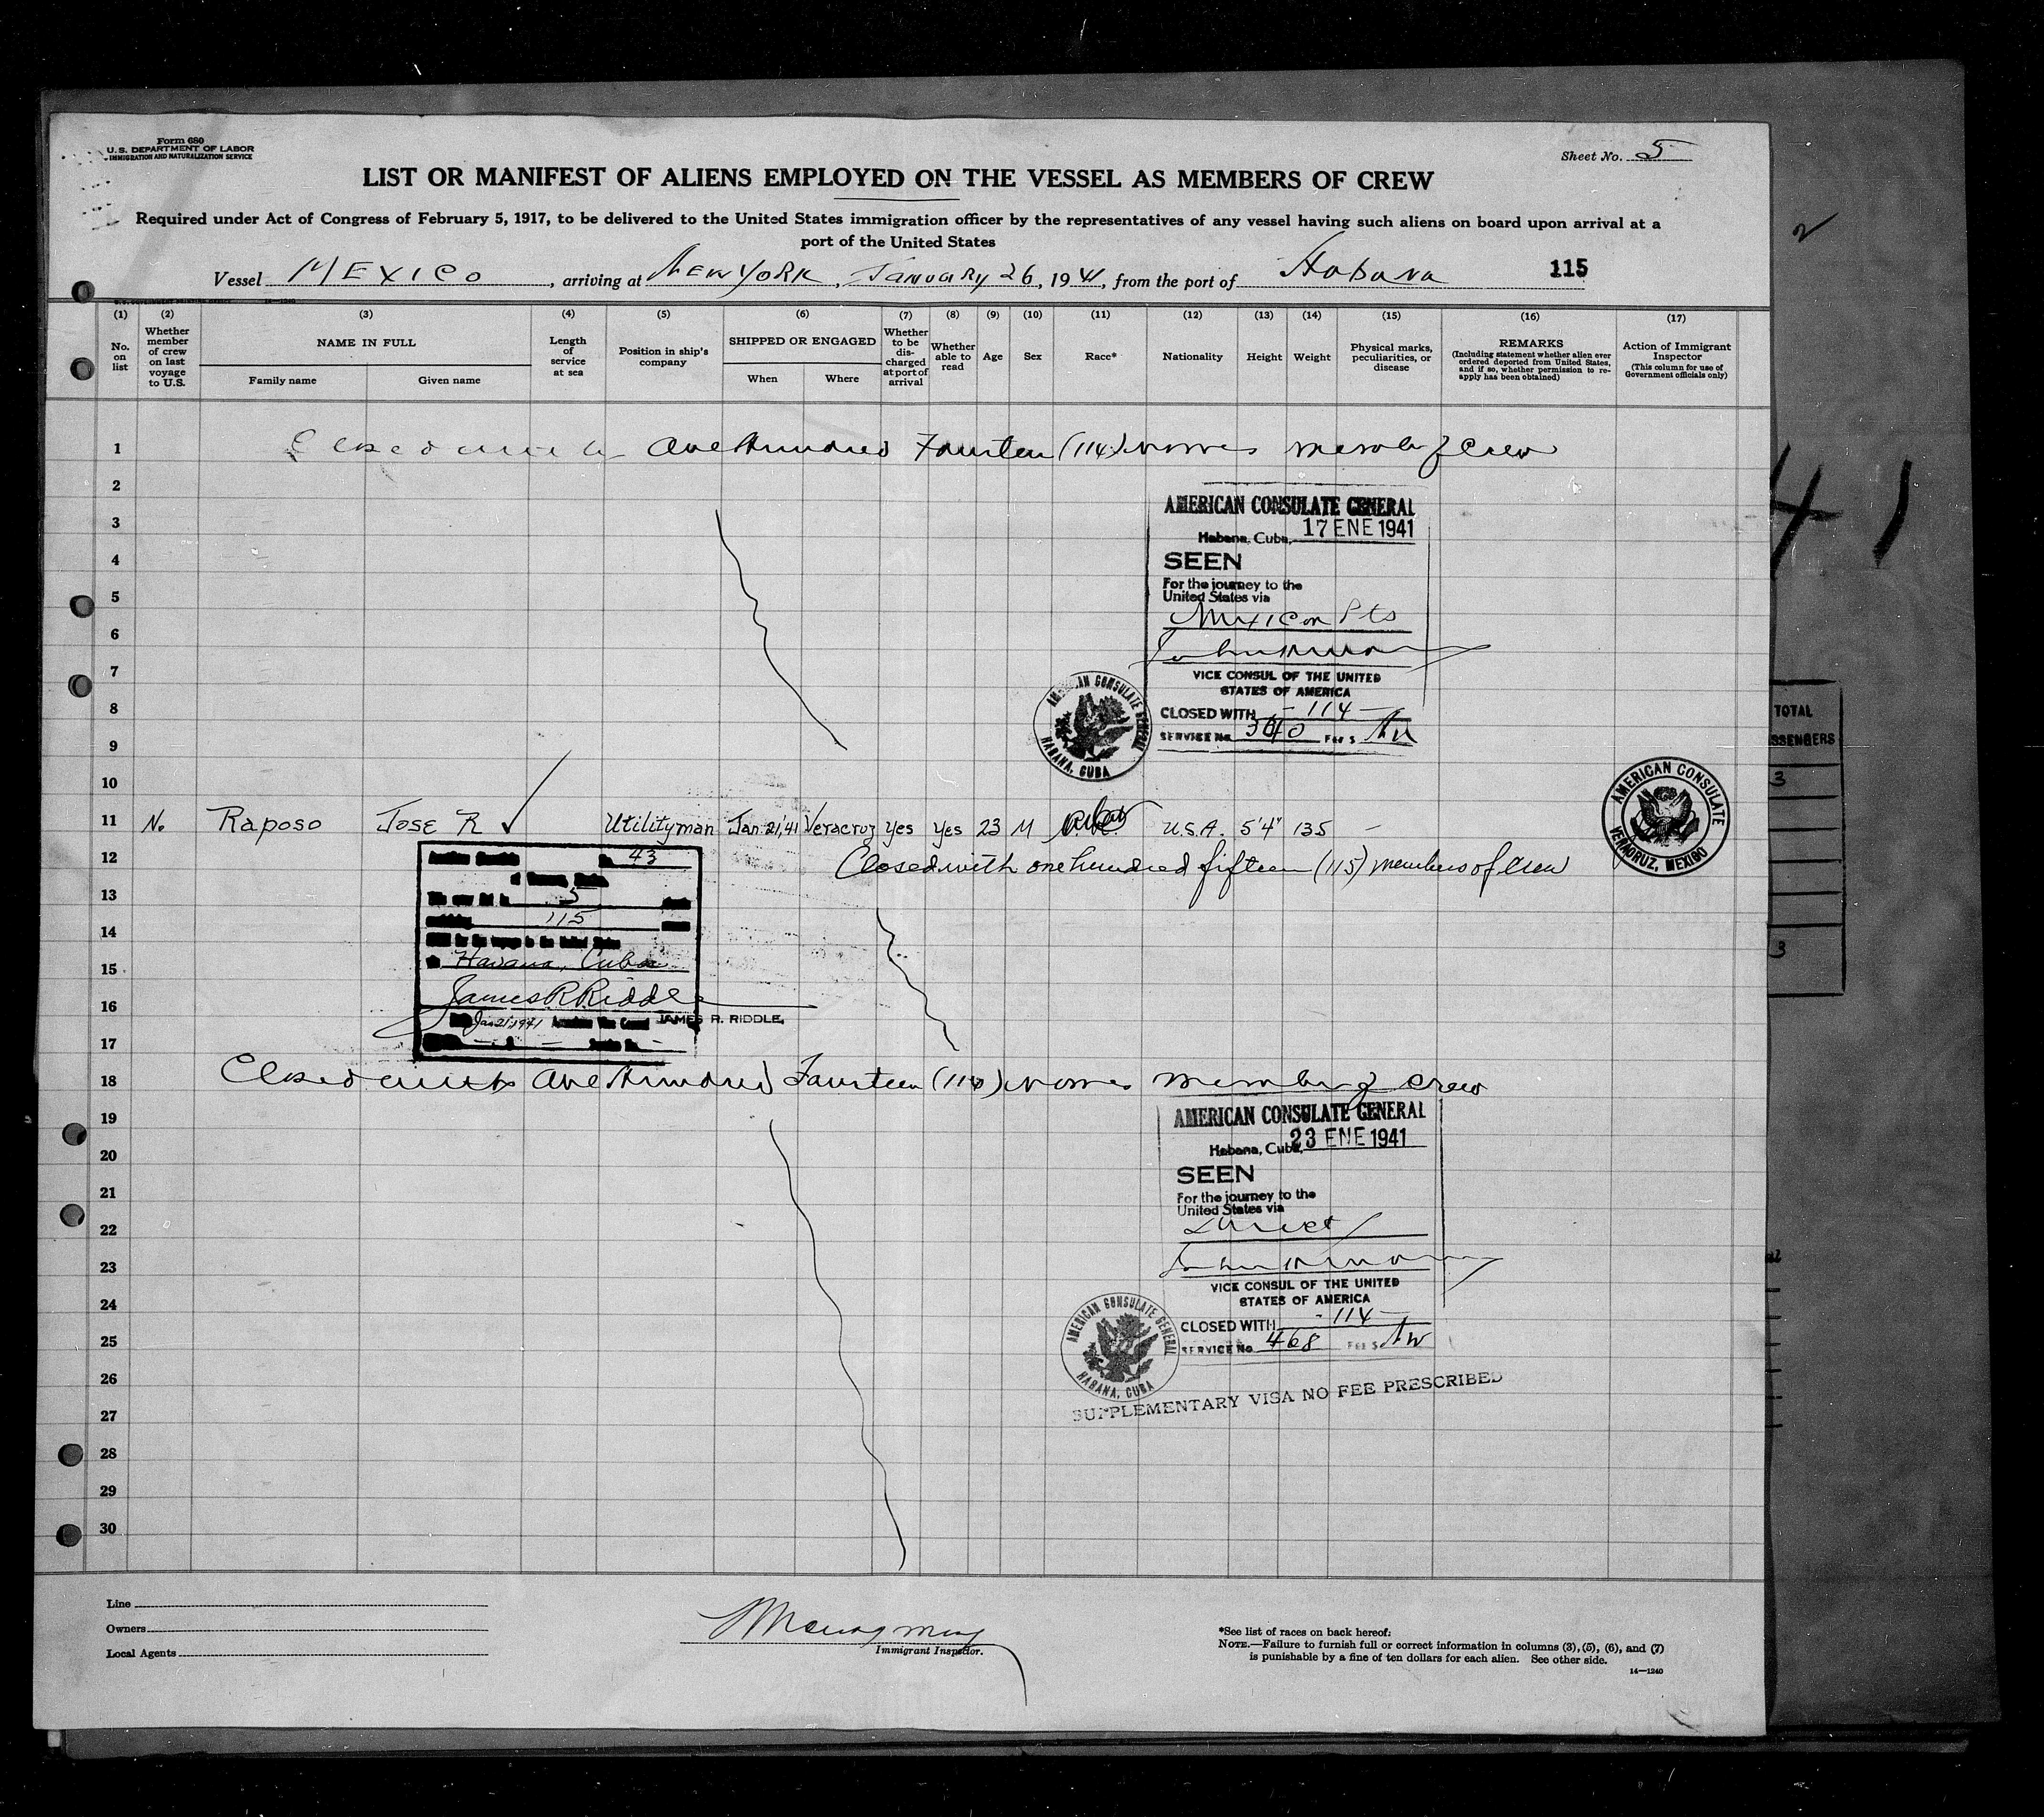 Form 680
U. S. DEPARTMENT OF LABOR
IMMIGRATION AND NATURALIZATION SERVICE
Sheet No. 5
LIST OR MANIFEST OF ALIENS EMPLOYED ON THE VESSEL AS MEMBERS OF CREW
Required under Act of Congress of February 5, 1917, to be delivered to the United States immigration officer by the representatives of any vessel having such aliens on board upon arrival at a
port of the United States
Vessel MEXICO, arriving at NEW YORK, JANUARY 26, 1941, from the port of Habana 115
(1) (2) (3) (4) (5) (6) (7) (8) (9) (10) (11) (12) (13) (14) (15) (16) (17)
No. on list
Whether member of crew on last voyage to U.S.
NAME IN FULL
Family name
Given name
Length of service at sea
Position in ship's company
SHIPPED OR ENGAGED
When
Where
Whether to be discharged at port of arrival
Whether able to read
Age
Sex
Race*
Nationality
Height
Weight
Physical marks, peculiarities, or disease
REMARKS
(Including statement whether alien ever ordered deported from United States, and if so, whether permission to reapply has been obtained)
Action of Immigrant Inspector
(This column for use of Government officials only)
1 Closed with One Hundred Fourteen (114) names members of crew
2
AMERICAN CONSULATE GENERAL
3
Habana, Cuba, 17 ENE 1941
4
SEEN
For the journey to the
5
United States via
6
Mexican Pts
7
VICE CONSUL OF THE UNITED
STATES OF AMERICA
8
CLOSED WITH - 114 -
9
SERVICE No. FEE $
AMERICAN CONSULATE GENERAL
HABANA, CUBA
10
11 No Raposo Jose R Utilityman Jan 21,'41 Veracruz yes yes 23 M U.S.A. 5'4" 135 -
AMERICAN CONSULATE
VERACRUZ, MEXICO
12 Closed with one hundred fifteen (115) members of crew
No. 43
13
5
14
115
15
Havana, Cuba
16
James R Riddle
Jan 21, 1941 American Vice Consul JAMES R. RIDDLE.
17
Service No. -
18 Closed with One Hundred Fourteen (114) names members of crew
19
AMERICAN CONSULATE GENERAL
20
Habana, Cuba, 23 ENE 1941
21
SEEN
For the journey to the
United States via
22
Direct
23
VICE CONSUL OF THE UNITED
24
STATES OF AMERICA
CLOSED WITH - 114 -
25
SERVICE No. 468 FEE $
AMERICAN CONSULATE GENERAL
HABANA, CUBA
26
SUPPLEMENTARY VISA NO FEE PRESCRIBED
27
28
29
30
Line
Owners
Local Agents
Immigrant Inspector.
*See list of races on back hereof.
NOTE.—Failure to furnish full or correct information in columns (3), (5), (6), and (7)
is punishable by a fine of ten dollars for each alien. See other side.
14—1240
2
41
TOTAL
SSENGERS
3
3